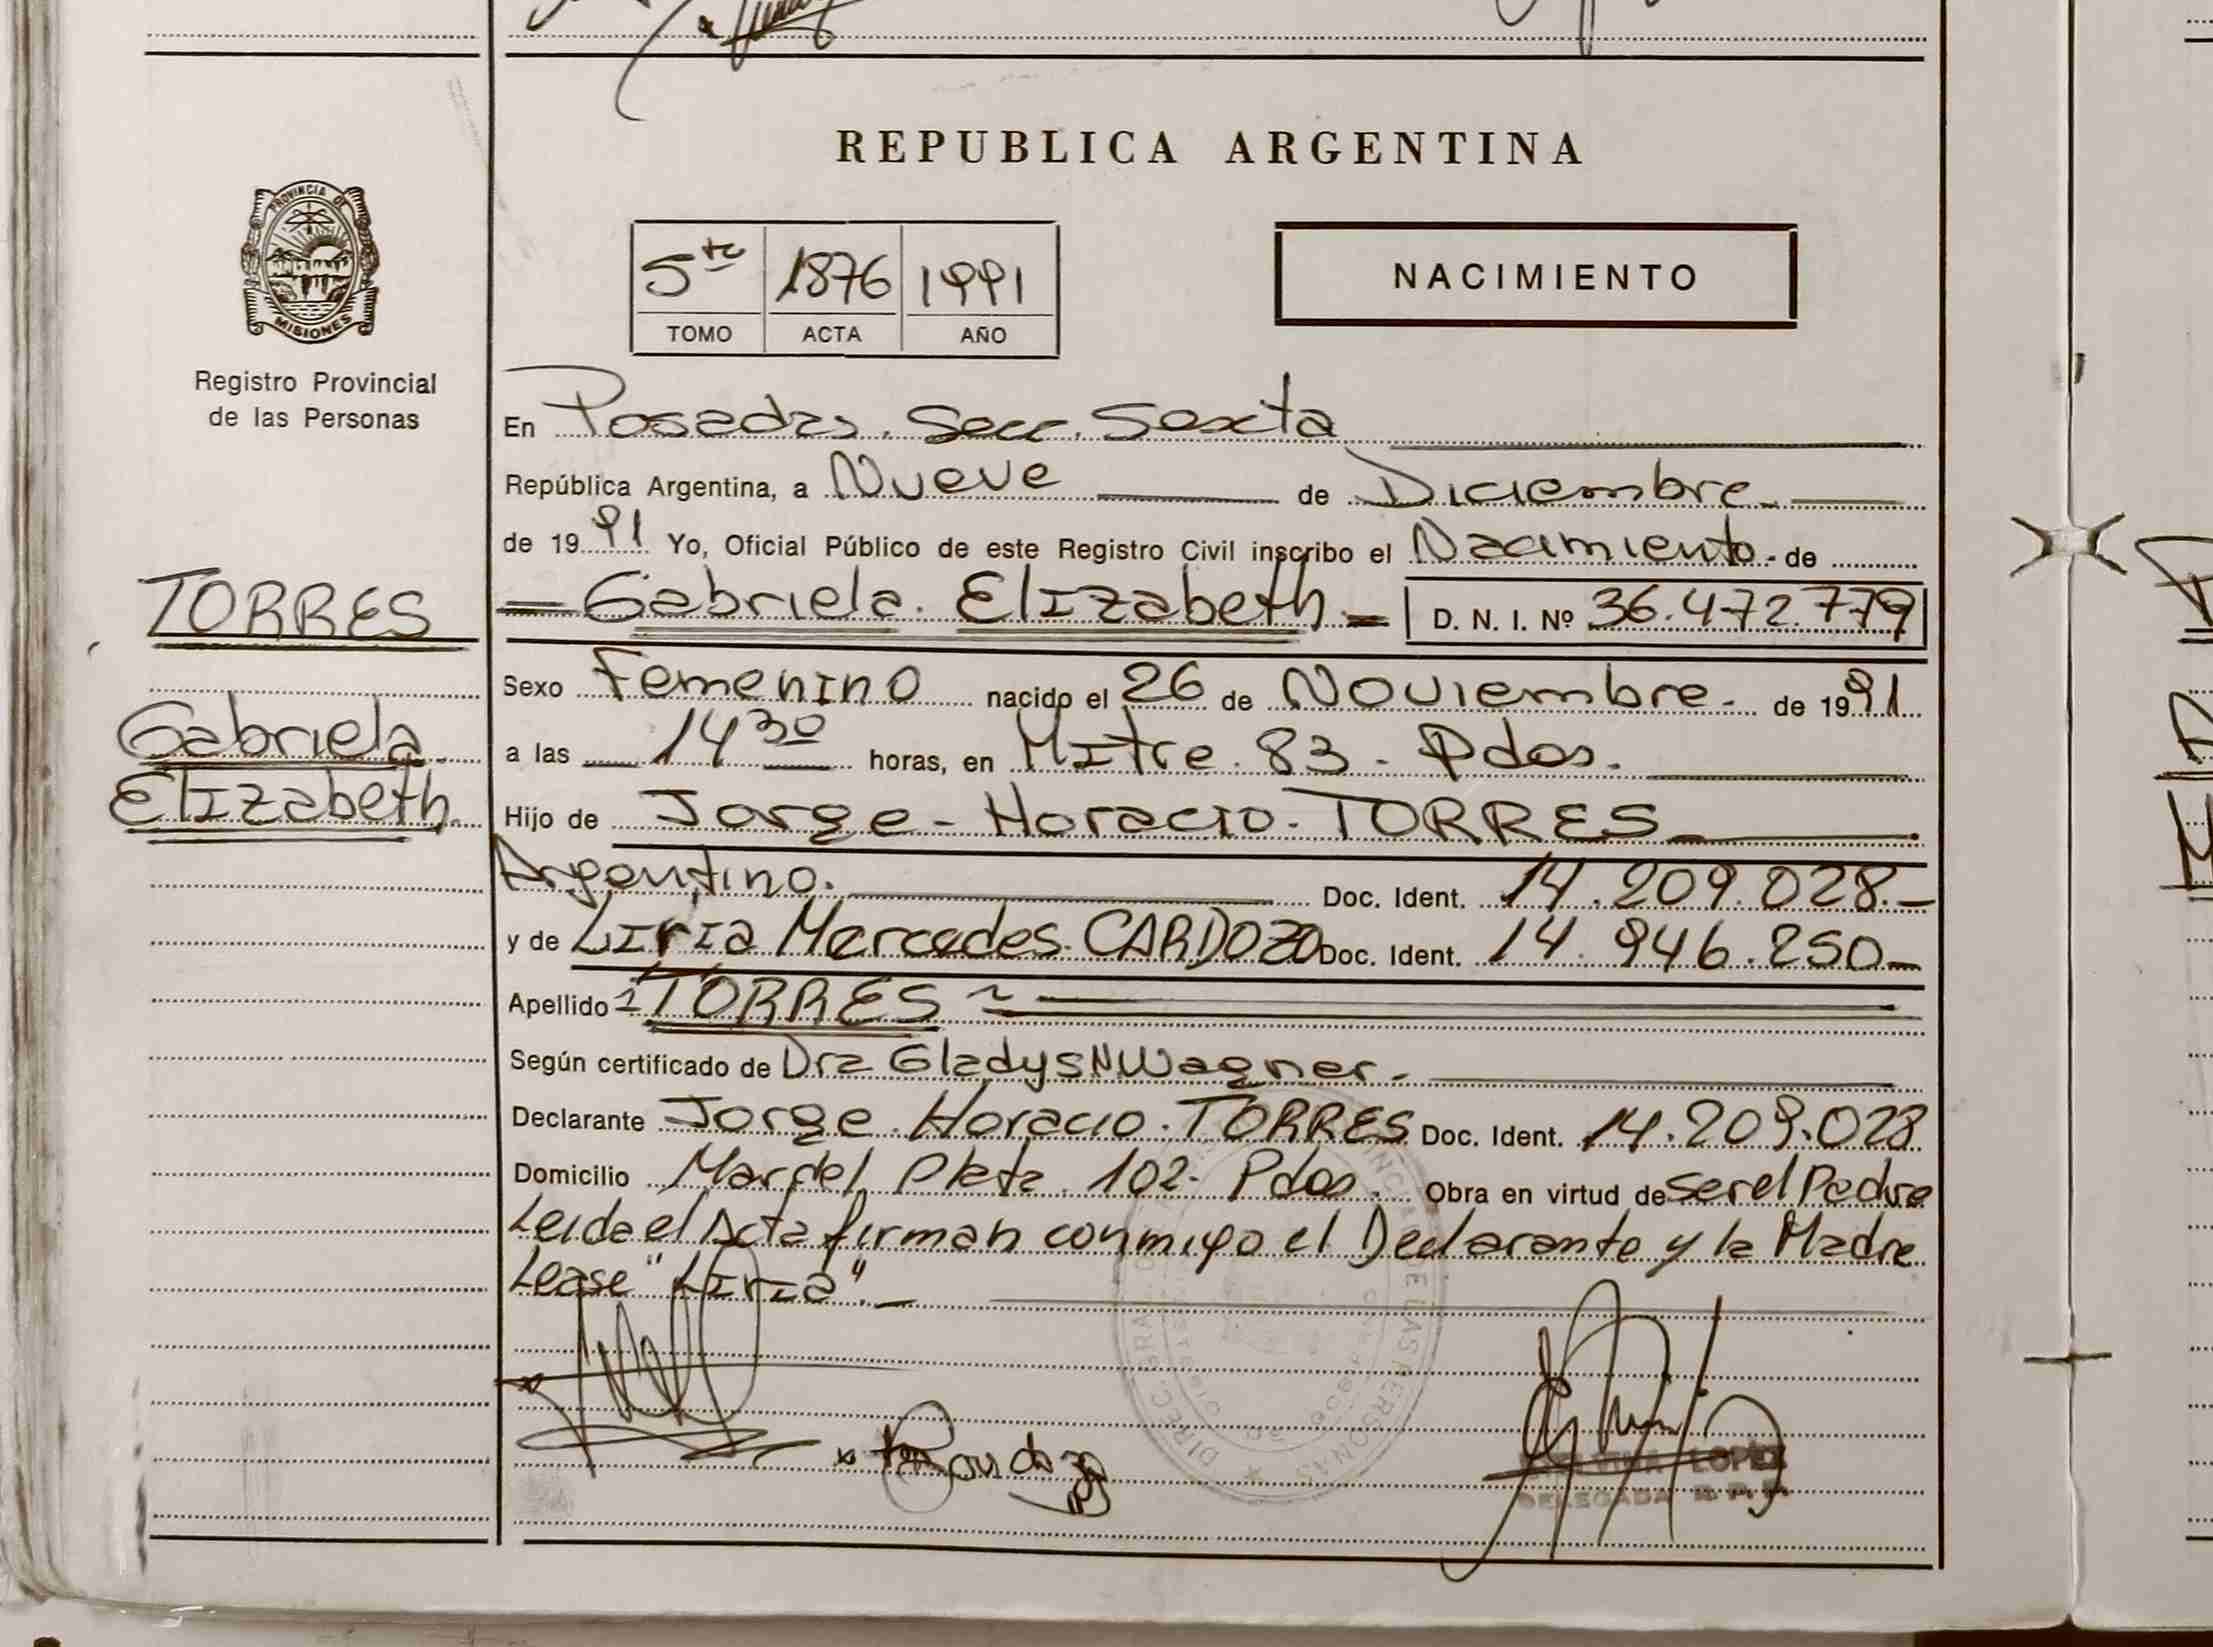 REPUBLICA ARGENTINA
PROVINCIA DE
MISIONES
Registro Provincial
de las Personas
5to 1876 1991
TOMO ACTA AÑO
NACIMIENTO
En Posadas. Secc. Sexta
República Argentina, a Nueve de Diciembre.
de 1991 Yo, Oficial Público de este Registro Civil inscribo el Nacimiento. de
TORRES
Gabriela Elizabeth
Gabriela. Elizabeth D. N. I. Nº 36.472.779
Sexo Femenino nacido el 26 de Noviembre. de 1991
a las 14 30 horas, en Mitre. 83. Pdas.
Hijo de Jorge - Horacio. TORRES
Argentino. Doc. Ident. 14.209.028.
y de Liria Mercedes. CARDOZO Doc. Ident. 14.946.250
Apellido TORRES
Según certificado de Dra Gladys N Wagner.
Declarante Jorge. Horacio. TORRES Doc. Ident. 14.209.028
Domicilio Mar del Plata 102. Pdas. Obra en virtud de ser el Padre
Leida el Acta firman conmigo el Declarante y la Madre
Lease "Liria".
LOPEZ
DELEGADA R.P.P.